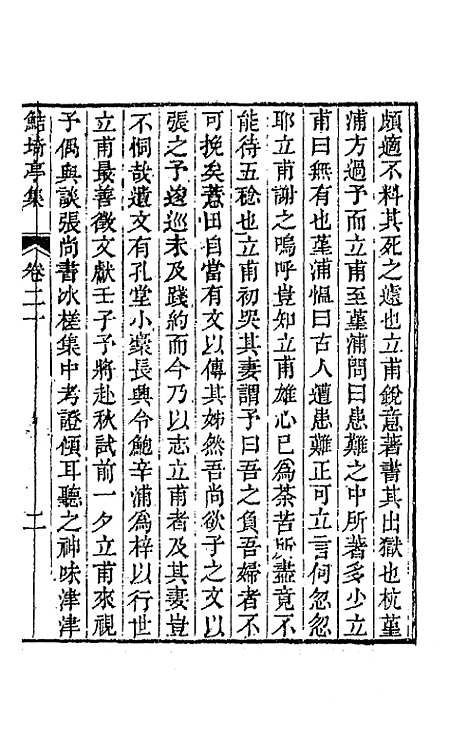 頗適不料其死之遽也立甫銳意著書其出獄也杭堇
浦方過予而立甫至堇浦問曰患難之中所著多少立
甫曰無有也堇浦慍曰古人遭患難正可立言何忽忽
耶立甫謝之嗚呼豈知立甫雄心已為荼苦所盡竟不
能待五稔也立甫初哭其妻謂予曰吾之負吾婦者不
可挽矣薏田自當有文以傳其姊然吾尚欲子之文以
張之予逡巡未及踐約而今乃以志立甫者及其妻豈
不恫哉遺文有孔堂小稾長興令鮑辛浦為梓以行世
立甫最善徵文獻壬子予將赴秋試前一夕立甫來視
予偶與談張尚書冰槎集中考證傾耳聽之神味津津
鮚埼亭集
卷二十
二